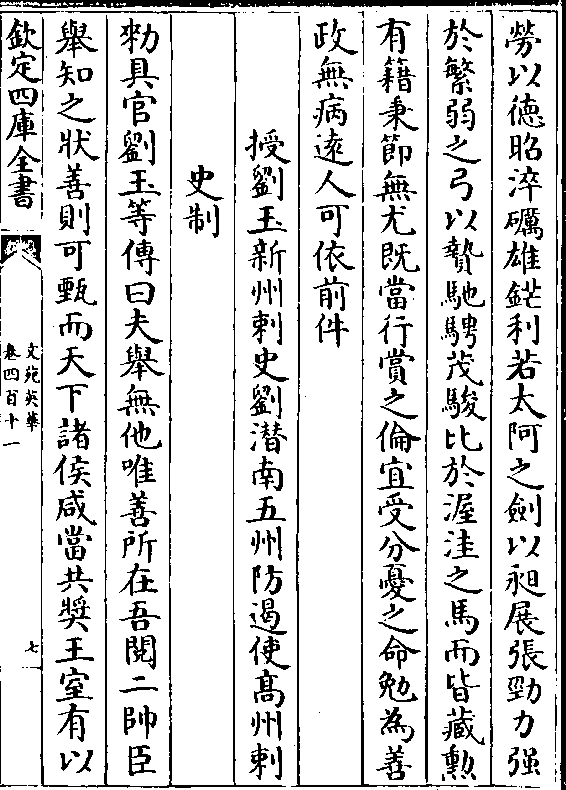 勞以德昭淬礪雄鋩利若太阿之劍以昶展張勁力强
於繁弱之弓以贄馳騁茂駿比於渥洼之馬而皆藏勲
有籍秉節無尤既當行賞之倫宜受分憂之命勉為善
政無病逺人可依前件
授劉玉新州刺史劉潛南五州防遏使髙州刺
史制
勑具官劉玉等傳曰夫舉無他唯善所在吾閱二帥臣
舉知之狀善則可甄而天下諸侯咸當共奬王室有以
欽定四庫全書
文苑英華
卷四百十一
七